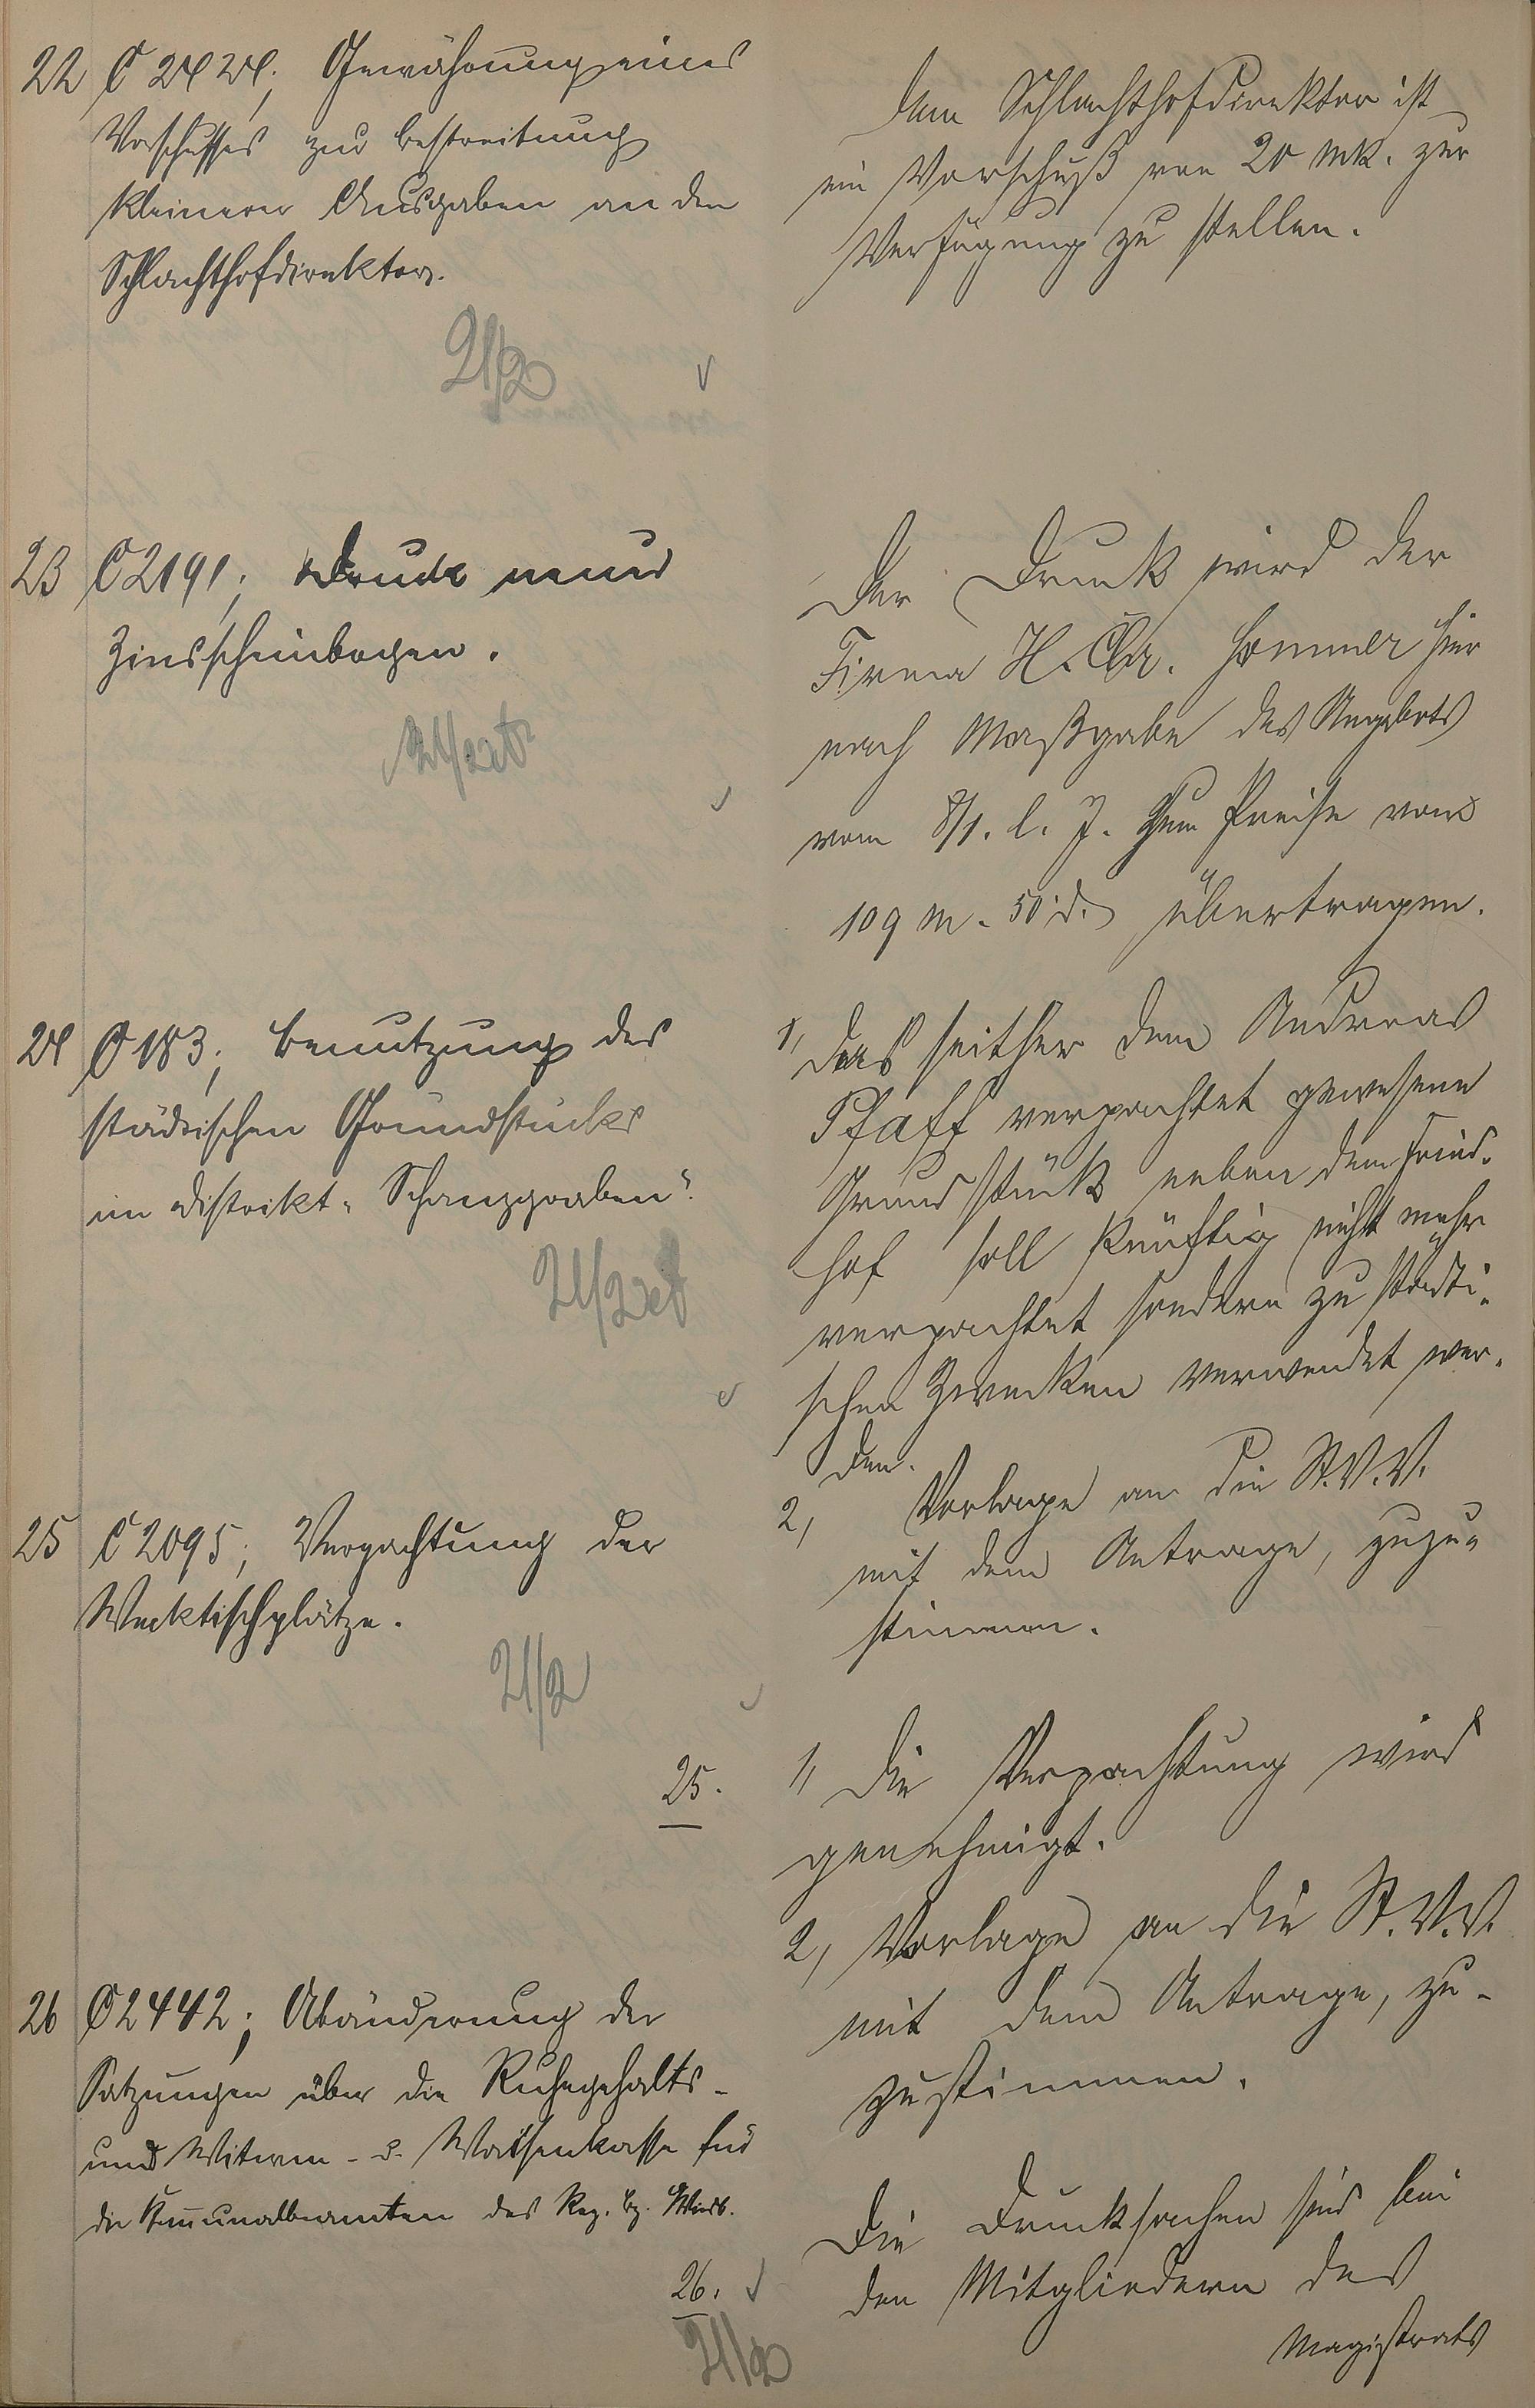 22 C 2424; Gewährung eines
Vorschusses zur Bestreitung
kleinerer Ausgaben an den
Schlachthofdirektor.
21/2
Dem Schlachthofdirektor ist
ein Vorschuß von 20 Mk. zur
Verfügung zu stellen.
23 C 2191; Druck neuer
Zinsscheinbogen.
21/2
Der Druck wird der
Firma H. Chr. Sommer hier
nach Maßgabe des Angebots
vom 8/1. l. J. zum Preise von
109 M. 50 d. übertragen.
24 C 183; Benutzung des
städtischen Grundstücks
im Distrikt „Schanzgraben".
21/2
1, Das seither dem Andreas
Pfaff verpachtet gewesene
Grundstück neben dem Fried-
hof soll künftig nicht mehr
verpachtet sondern zu städti-
schen Zwecken verwendet wer-
den.
2, Vorlage an die St.V.V.
mit dem Antrage, zuzu-
stimmen.
25 C 2095; Verpachtung der
Wecktischplätze.
21/2
25.
1, Die Verpachtung wird
genehmigt.
2, Vorlage an die St.V.V.
mit dem Antrage, zu-
zustimmen.
26 C 2442; Abänderung der
Satzungen über die Ruhegehalts-
und Witwen- u. Waisenkasse für
die Kommunalbeamten des Reg. Bz. Wiesb.
26.
21/2
Die Drucksachen sind bei
den Mitgliedern des
Magistrats